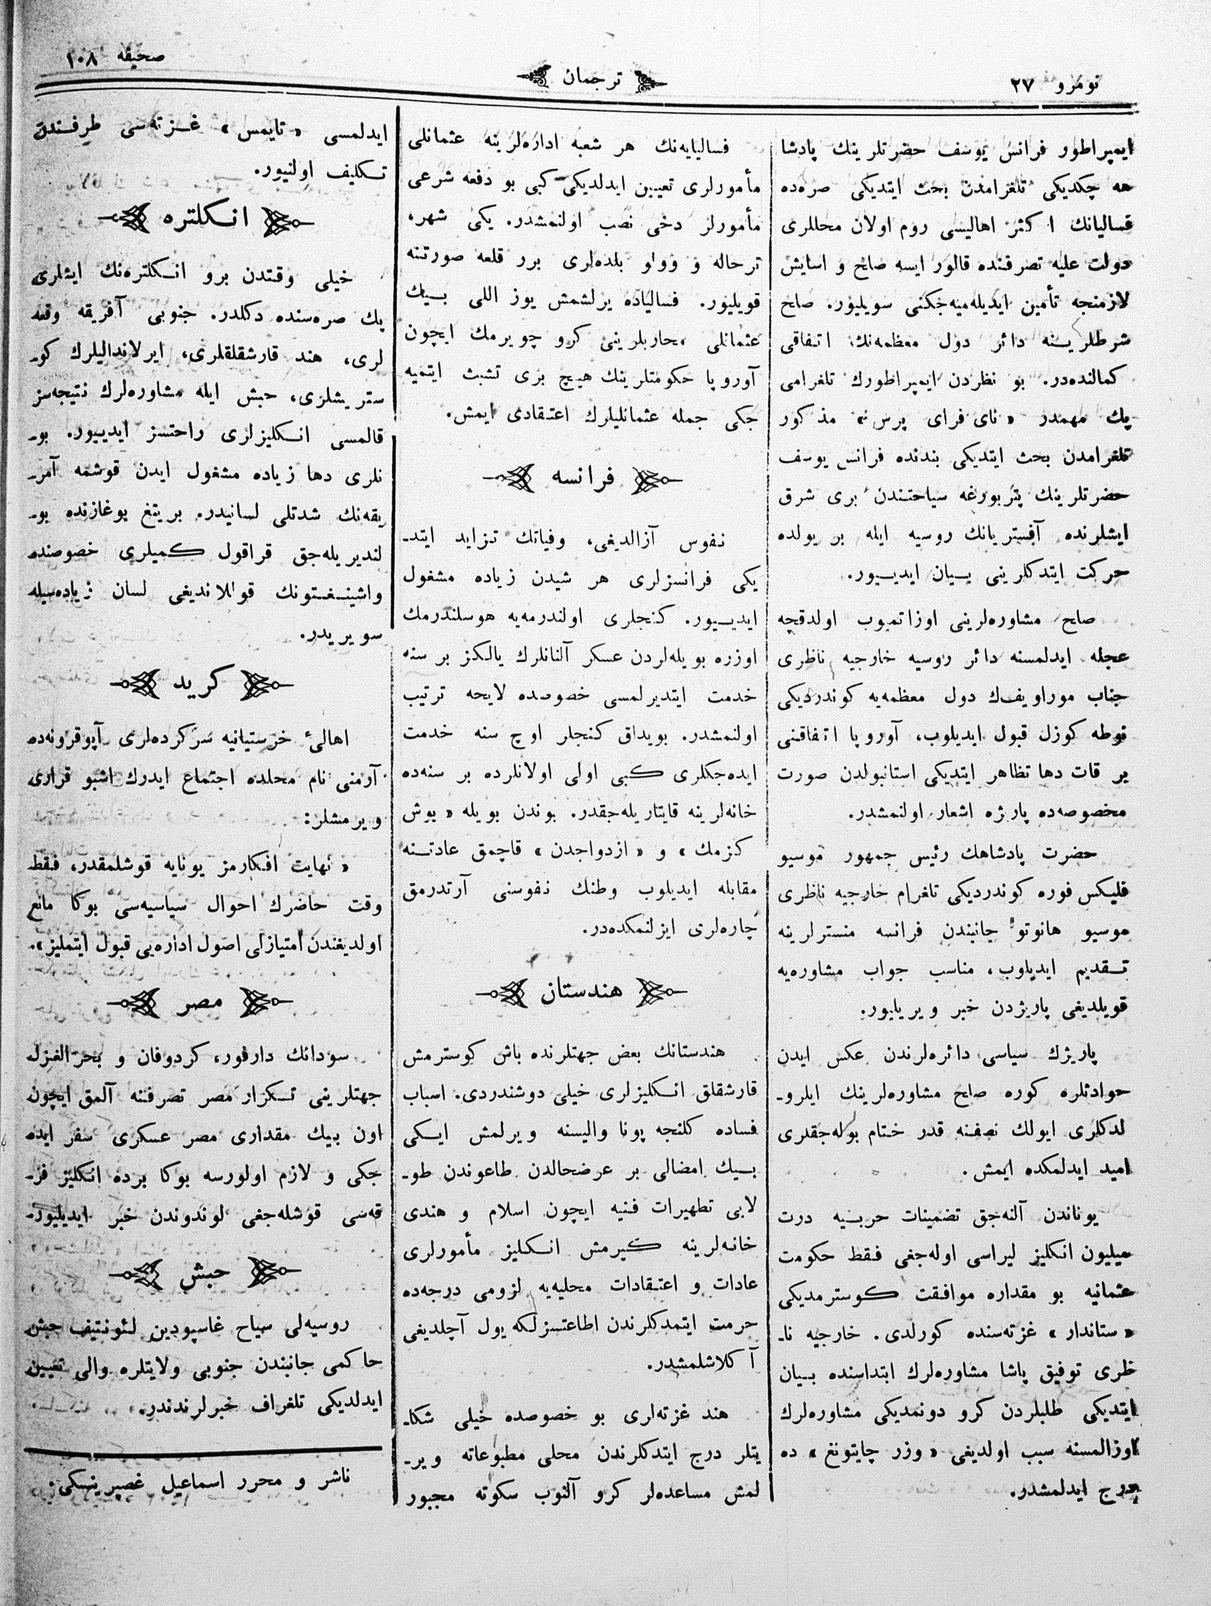 نومرو ٢٧
ترجمان
صحیفه ١٠٨
ایمپراطور فرانس یوسف حضرتلرینك پادشا
هه چكدیكی تلغرامدن بحث ایتدیكی صره‌ده
فسالیانك اكثر اهالیسی روم اولان محللری
دولت علیه تصرفنده قالور ایسه صلح و اسایش
لازمنجه تأمین ایدیله‌میه‌جكنی سویلیور. صلح
شرطلرینه دائر دول معظمه‌نك اتفاقی
كمالنده‌در. بو نظردن ایمپراطورك تلغرامی
پك مهمدر «نای فرای پرس» مذكور
تلغرامدن بحث ایتدیكی بندنده فرانس یوسف
حضرتلرینك پتربورغه سیاحتندن بری شرق
ایشلرنده آفستریانك روسیه ایله بر یولده
حركت ایتدكلرینی بیان ایدیور.
صلح مشاوره‌لرینی اوزاتمیوب اولدقچه
عجله ایدلمسنه دائر روسیه خارجیه ناظری
جناب موراویفك دول معظمه‌یه كوندردیكی
نوطه كوزل قبول ایدیلوب، آوروپا اتفاقینی
بر قات دها تظاهر ایتدیكی استانبولدن صورت
مخصوصه‌ده پاریژه اشعار اولنمشدر.
حضرت پادشاهك رئیس جمهور موسیو
فلیكس فوره كوندردیكی تلغرام خارجیه ناظری
موسیو هانوتو جانبندن فرانسه منسترلرینه
تقدیم ایدیلوب، مناسب جواب مشاوره‌یه
قویلدیغی پاریژدن خبر ویریلیور.
پاریژك سیاسی دائره‌لرندن عكس ایدن
حوادثلره كوره صلح مشاوره‌لرینك ایلرو-
لدكلری ایولك نصفنه قدر ختام بوله‌جقلری
امید ایدلمكده ایمش.
یوناندن آلنه‌جق تضمینات حربیه درت
میلیون انكلیز لیراسی اوله‌جغی فقط حكومت
عثمانیه بو مقداره موافقت كوسترمدیكی
«ستاندار» غزته‌سنده كورلدی. خارجیه نا-
ظری توفیق پاشا مشاوره‌لرك ابتداسنده بیان
ایتدیكی طلبلردن كرو دونمدیكی مشاوره‌لرك
اوزالمسنه سبب اولدیغی «وزر چایتونغ» ده
درج ایدلمشدر.
فسالیایه‌نك هر شعبه اداره‌لرینه عثمانلی
مأمورلری تعیین ایدلدیكی كبی بو دفعه شرعی
مأمورلر دخی نصب اولنمشدر. یكی شهر،
ترحاله و وولو بلده‌لری برر قلعه صورتنه
قویلیور. فسالیاده یرلشمش یوز اللی بیك
عثمانلی محاربلرینی كرو چویرمك ایچون
آوروپا حكومتلرینك هیچ بری تشبث ایتمیه
جكی جمله عثمانلیلرك اعتقادی ایمش.
فرانسه
نفوس آزالدیغی، وفیاتك تزاید ایتد-
یكی فرانسزلری هر شیدن زیاده مشغول
ایدییور. كنجلری اولندرمه‌یه هوسلندرمك
اوزره بویله‌لردن عسكر آلنانلرك یالكز بر سنه
خدمت ایتدیرلمسی خصوصده لایحه ترتیب
اولنمشدر. بویداق كنجلر اوچ سنه خدمت
ایده‌جكلری كبی اولی اولانلرده بر سنه‌ده
خانه‌لرینه قایتاریله‌جقدر. بوندن بویله «بوش
كزمك» و «ازدواجدن» قاچمق عادتنه
مقابله ایدیلوب وطنك نفوسنی آرتدرمق
چاره‌لری ایزلنمكده‌در.
هندستان
هندستانك بعض جهتلرنده باش كوسترمش
قارشقلق انكلیزلری خیلی دوشندردی. اسباب
فساده كلنجه پونا والیسنه ویرلمش ایكی
بیك امضالی بر عرضحالدن طاعوندن طو-
لایی تطهیرات فنیه ایچون اسلام و هندی
خانه‌لرینه كیرمش انكلیز مأمورلری
عادات و اعتقادات محلیه‌یه لزومی درجه‌ده
حرمت ایتمدكلرندن اطاعتسزلكه یول آچلدیغی
آكلاشلمشدر.
هند غزته‌لری بو خصوصده خیلی شكا-
یتلر درج ایتدكلرندن محلی مطبوعاته ویر-
لمش مساعده‌لر كرو آلنوب سكوته مجبور
ایدلمسی «تایمس» غزته‌سی طرفندن
تكلیف اولنیور.
انكلتره
خیلی وقتدن برو انكلتره‌نك ایشلری
پك صره‌سنده دكلدر. جنوبی آفریقه وقعه
لری، هند قارشقلقلری، ایرلاندالیلرك كو-
ستریشلری، حبش ایله مشاوره‌لرك نتیجه‌سز
قالمسی انكلیزلری راحتسز ایدییور. بو-
نلری دها زیاده مشغول ایدن قوشمه آمر-
یقه‌نك شدتلی لسانیدر. برینغ بوغازنده بو-
لندیریله‌جق قراقول كمیلری خصوصنده
واشینغتونك قوللاندیغی لسان زیاده‌سیله
سویریدر.
كرید
اهالیٔ خرستیانیه سركرده‌لری آپوقرونه‌ده
آرمنی نام محلده اجتماع ایدرك اشبو قراری
ویرمشلر:
«نهایت افكارمز یونایه قوشلمقدر، فقط
وقت حاضرك احوال سیاسیه‌سی بوكا مانع
اولدیغندن امتیازلی اصول اداره‌یی قبول ایتملیز».
مصر
سودانك دارفور، كردوفان و بحر الغزله
جهتلرینی تكرار مصر تصرفنه آلمق ایچون
اون بیك مقداری مصر عسكری سفر ایده
جكی و لازم اولورسه بوكا برده انكلیز فر-
قه‌سی قوشله‌جغی لوندوندن خبر ایدیلیور-
حبش
روسیه‌لی سیاح غاسپودین لئونتیف حبش
حاكمی جانبندن جنوبی ولایتلره والی تعیین
ایدلدیكی تلغراف خبرلرندندر.
ناشر و محرر اسماعیل غصپرینسكی.